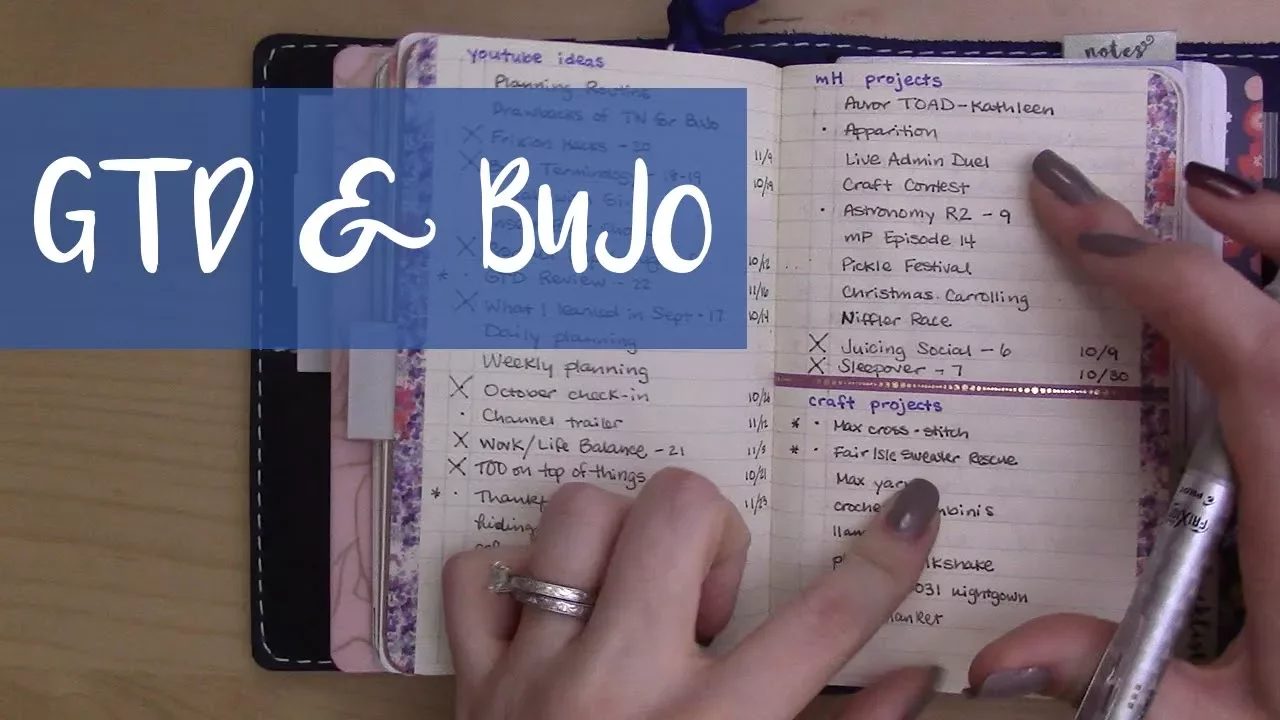 GTD & BUJO
youtube ideas
Planning Routine
Drawbacks of TN for BuJo
X Frixion Hacks - 20 11/9
X Terminology - 18-19 10/19
10/12
* · GTD Review - 22 11/16
X What I learned in Sept - 17 10/14
Daily planning
Weekly planning
X October check-in
· Channel trailer 11/12
X Work/Life Balance - 21
X TOD on top of things 10/21
* · 11/23
notes
mH projects
Auror TOAD - Kathleen
· Apparition
Live Admin Duel
Craft Contest
· Astronomy R2 - 9
mP Episode 14
Pickle Festival
Christmas Carrolling
Niffler Race
X Juicing Social - 6 10/9
X Sleepover - 7 10/30
craft projects
* · Max cross-stitch
* · Fair Isle Sweater Rescue
Max
nightgown
FRIXION
PILOT